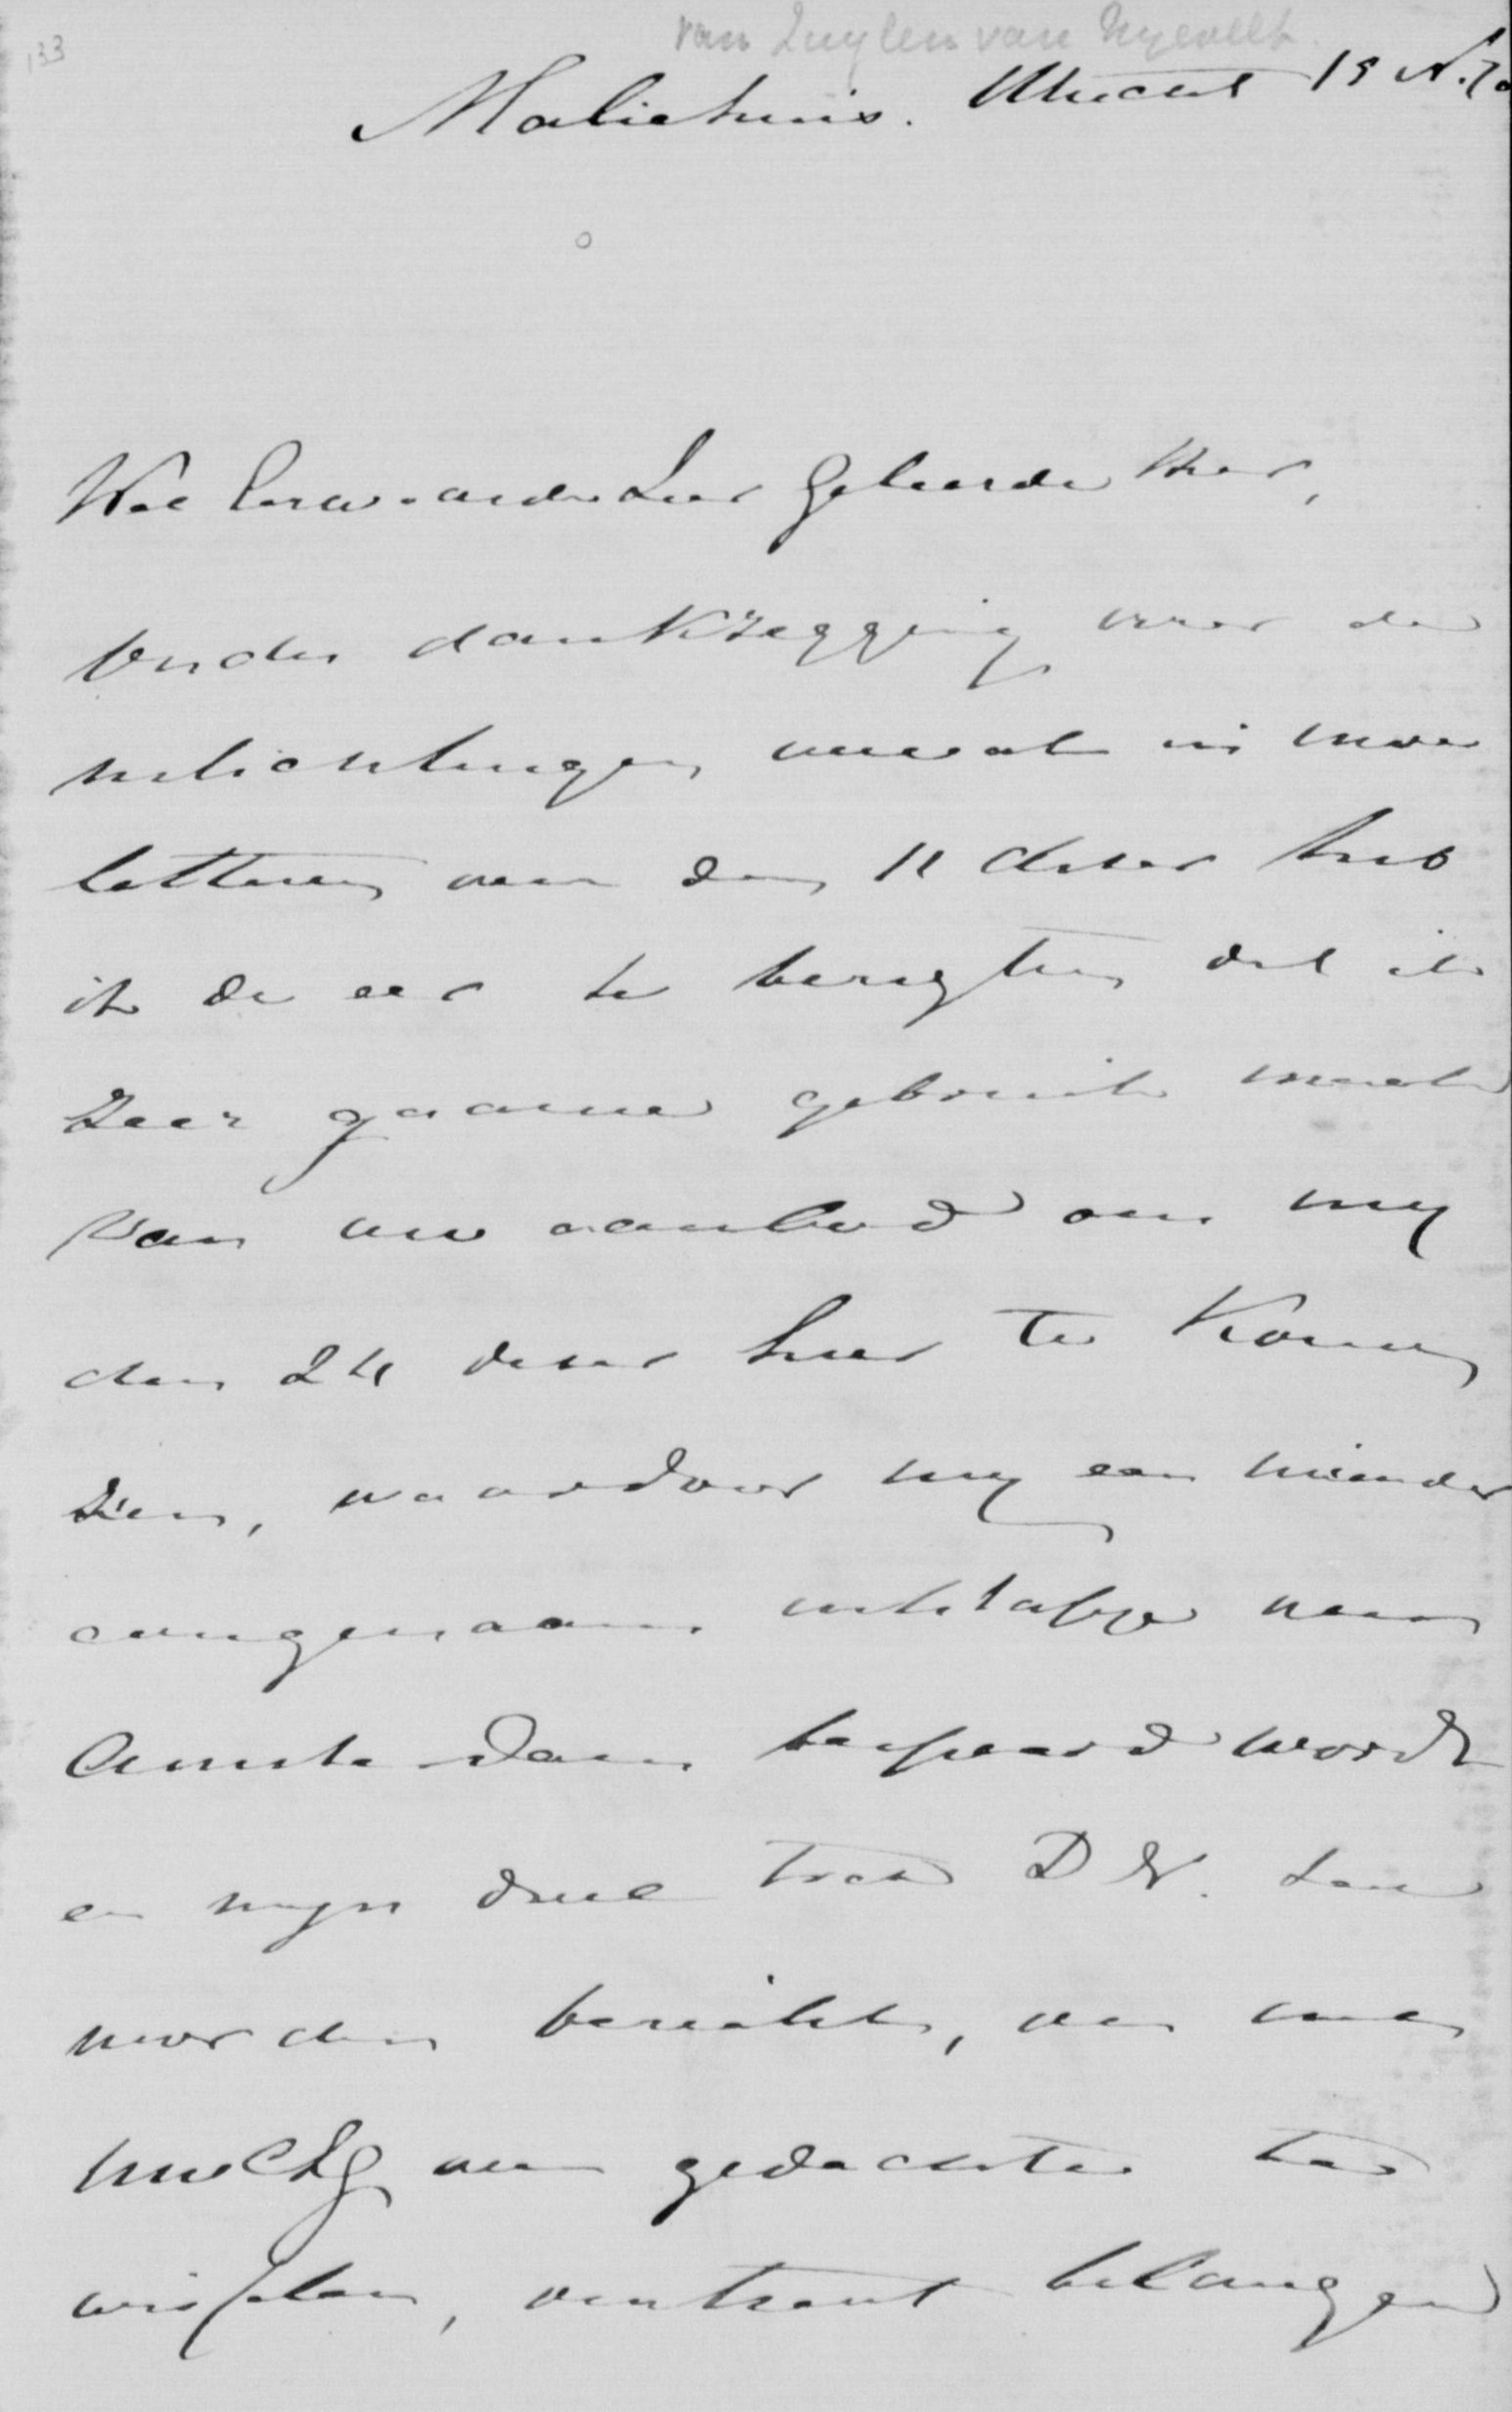 133
van Zuylen van Nyevelt.
Maliehuis. Utrecht 19 N. 70
Wel Eerwaarde Zeer Geleerde Heer,
Onder dankzegging voor de
inlichtingen vervat in uwe
letteren van den 11 dezer heb
ik de eer te berigten dat ik
zeer gaarne gebruik maak
van uw aanbod om my
den 24 dezer hier te komen
zien, waardoor my een minder
aangenaam uitstapje naar
Amsterdam bespaard wordt
en mijn doel toch D V. zal
worden bereikt, om met
UwelEg van gedachten te
wisselen, omtrent belangen